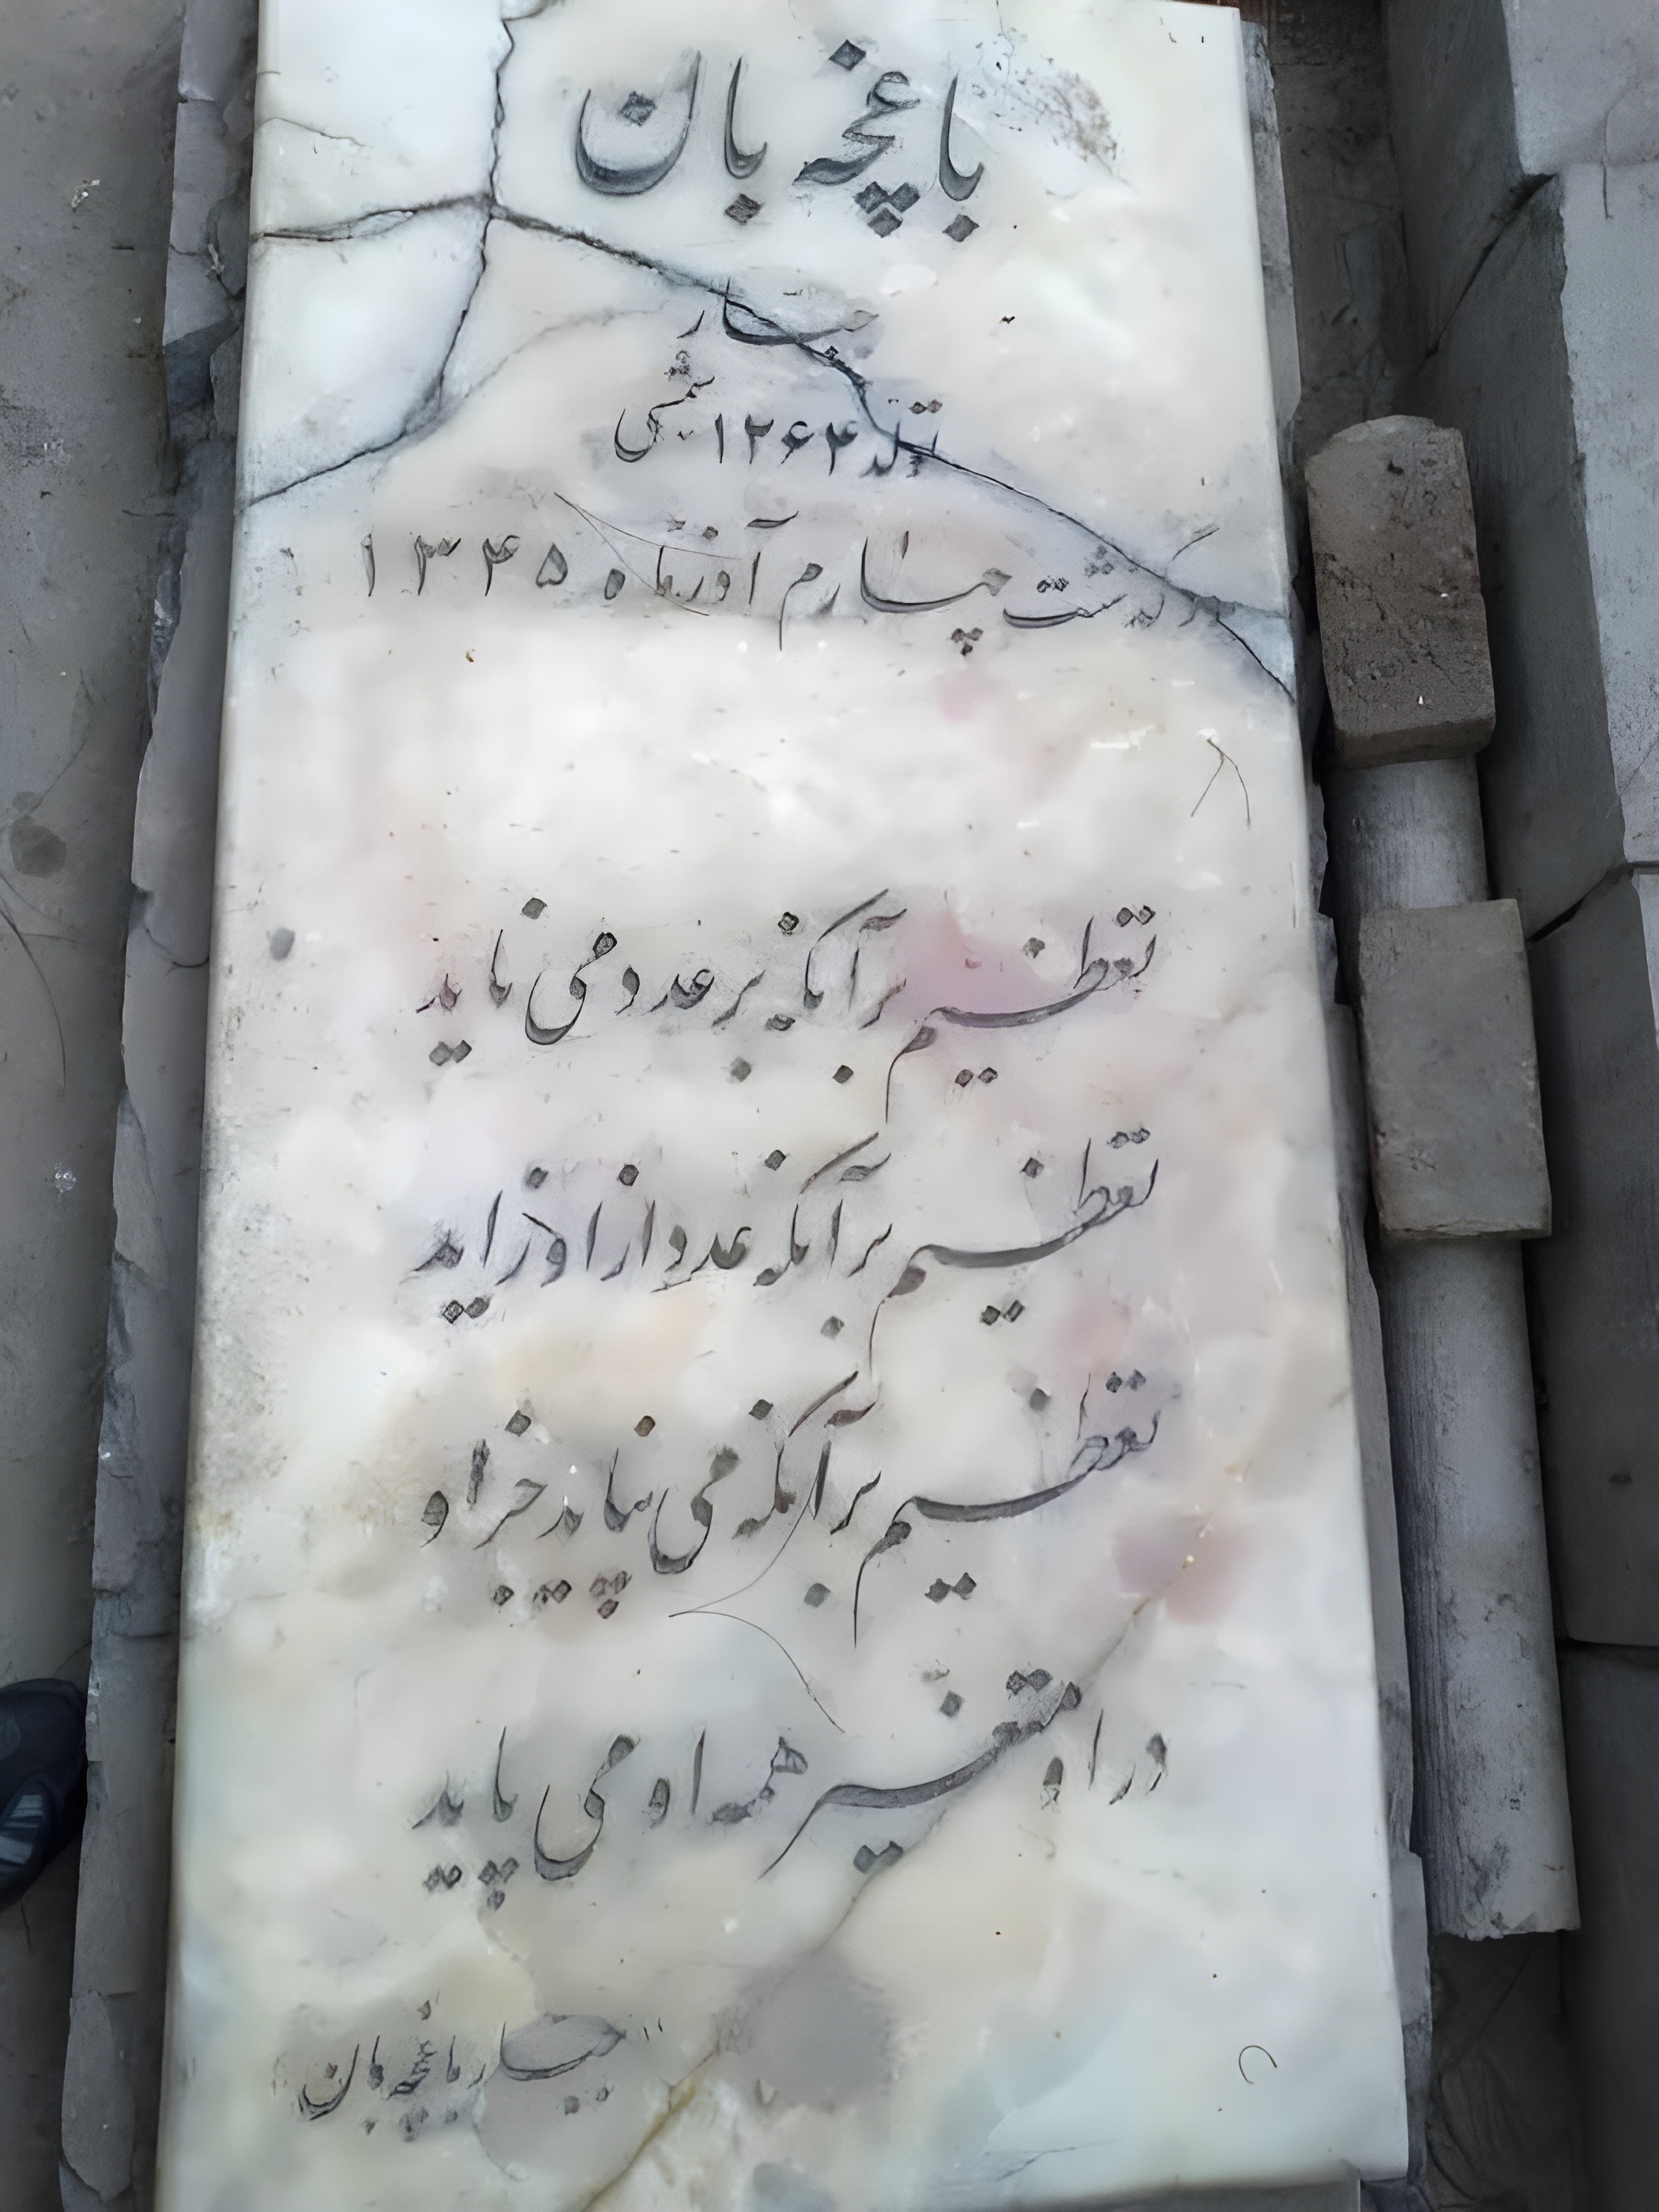 باغچه بان
جبار
تولد ۱۲۶۴ شمسی
درگذشت چهارم آذرماه ۱۳۴۵
تعظیم برآنکه بر عدد می ناید
تعظیم برآنکه عدد از او زاید
تعظیم برآنکه می نپاید جز او
در او متغیر همه او می پاید
جبار باغچه بان